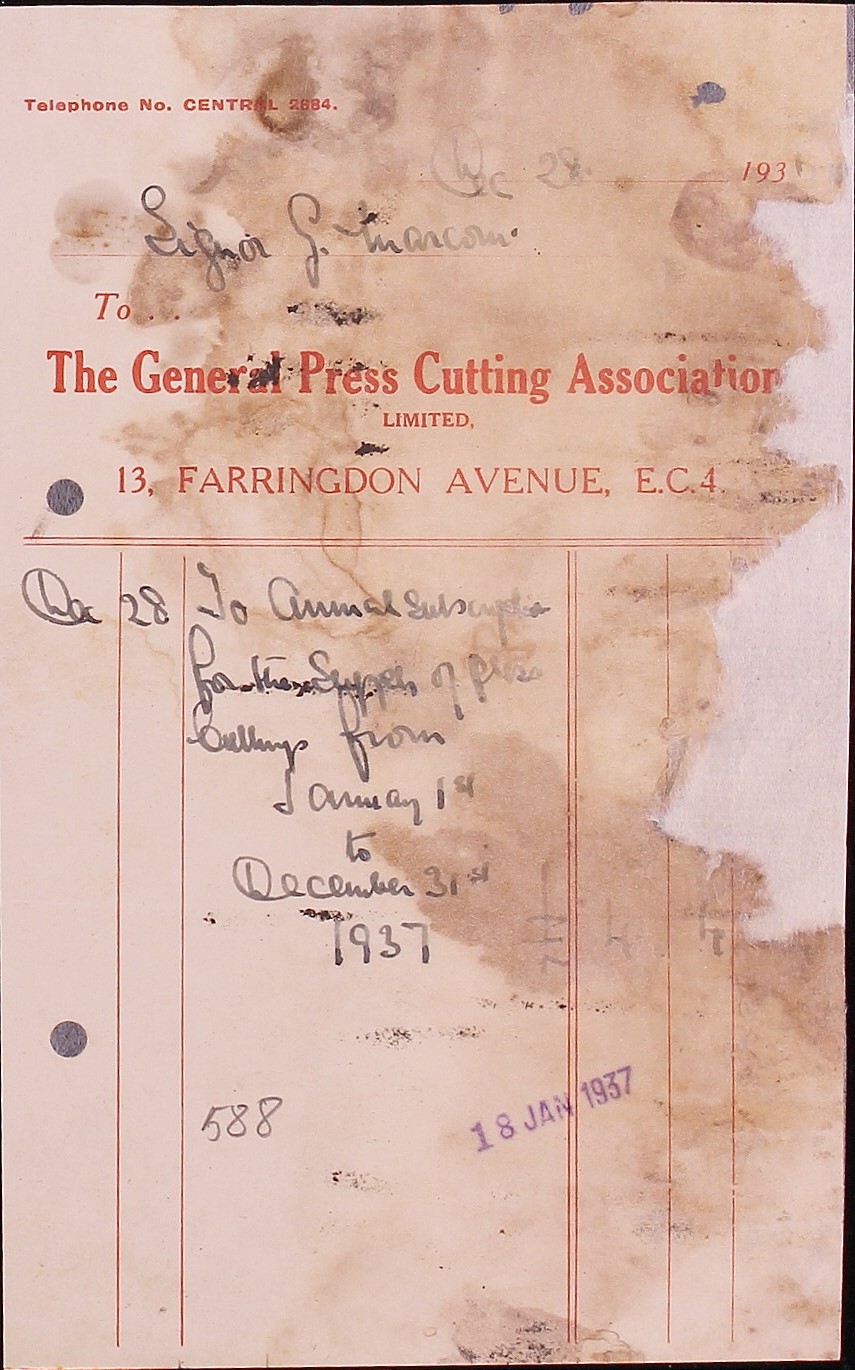 Telephone No. CENTRAL 2884.
Dec 28 193
Signor G. Marconi
To . .
The General Press Cutting Association
LIMITED,
13, FARRINGDON AVENUE, E.C.4.
Dec 28 To Annual Subscription
for the Supply of Press
Cuttings from
January 1st
to
December 31st
1937 4 4
588
18 JAN 1937